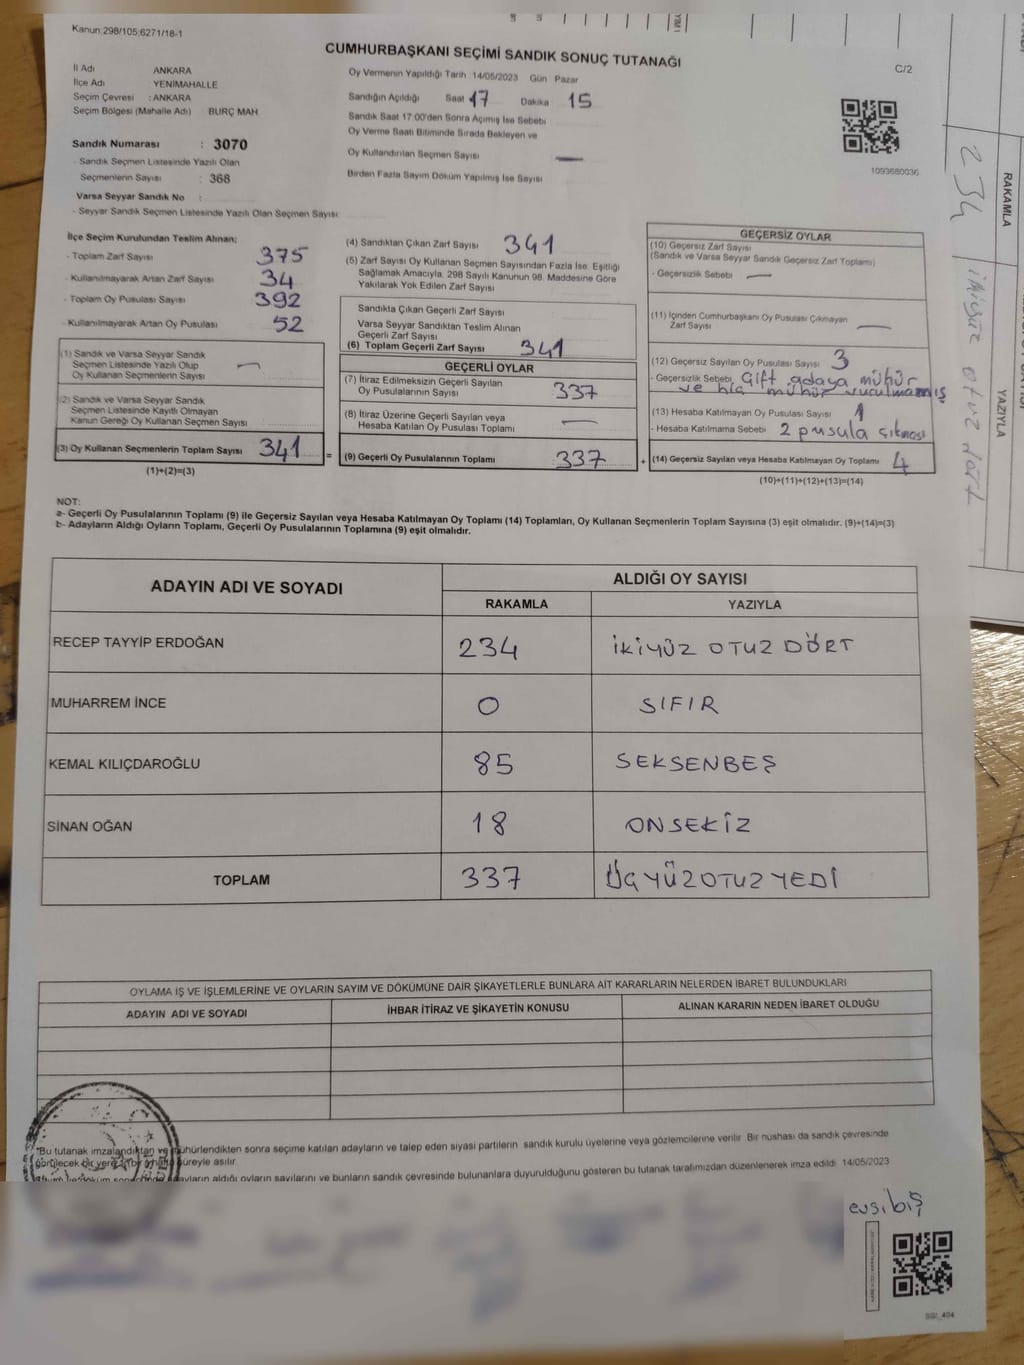 Kanun:298/105;6271/18-1
CUMHURBAŞKANI SEÇİMİ SANDIK SONUÇ TUTANAĞI
C/2
İl Adı ANKARA
İlçe Adı YENİMAHALLE
Seçim Çevresi : ANKARA
Seçim Bölgesi (Mahalle Adı) BURÇ MAH.
Sandık Numarası : 3070
- Sandık Seçmen Listesinde Yazılı Olan
Seçmenlerin Sayısı : 368
Varsa Seyyar Sandık No :
- Seyyar Sandık Seçmen Listesinde Yazılı Olan Seçmen Sayısı:
Oy Vermenin Yapıldığı Tarih 14/05/2023 Gün Pazar
Sandığın Açıldığı Saat 17 Dakika 15
Sandık Saat 17:00'den Sonra Açımış İse Sebebi
Oy Verme Saati Bitiminde Sırada Bekleyen ve
Oy Kullandırılan Seçmen Sayısı —
Birden Fazla Sayım Döküm Yapılmış İse Sayısı
1093680036
İlçe Seçim Kurulundan Teslim Alınan;
- Toplam Zarf Sayısı 375
- Kullanılmayarak Artan Zarf Sayısı 34
- Toplam Oy Pusulası Sayısı 392
- Kullanılmayarak Artan Oy Pusulası 52
(1) Sandık ve Varsa Seyyar Sandık
Seçmen Listesinde Yazılı Olup
Oy Kullanan Seçmenlerin Sayısı —
(2) Sandık ve Varsa Seyyar Sandık
Seçmen Listesinde Kayıtlı Olmayan
Kanun Gereği Oy Kullanan Seçmen Sayısı
(3) Oy Kullanan Seçmenlerin Toplam Sayısı 341 =
(1)+(2)=(3)
(4) Sandıktan Çıkan Zarf Sayısı 341
(5) Zarf Sayısı Oy Kullanan Seçmen Sayısından Fazla İse, Eşitliği
Sağlamak Amacıyla, 298 Sayılı Kanunun 98. Maddesine Göre
Yakılarak Yok Edilen Zarf Sayısı
Sandıkta Çıkan Geçerli Zarf Sayısı
Varsa Seyyar Sandıktan Teslim Alınan
Geçerli Zarf Sayısı
(6) Toplam Geçerli Zarf Sayısı 341
GEÇERLİ OYLAR
(7) İtiraz Edilmeksizin Geçerli Sayılan
Oy Pusulalarının Sayısı 337
(8) İtiraz Üzerine Geçerli Sayılan veya
Hesaba Katılan Oy Pusulası Toplamı —
(9) Geçerli Oy Pusulalarının Toplamı 337 +
GEÇERSİZ OYLAR
(10) Geçersiz Zarf Sayısı
(Sandık ve Varsa Seyyar Sandık Geçersiz Zarf Toplamı)
- Geçersizlik Sebebi —
(11) İçinden Cumhurbaşkanı Oy Pusulası Çıkmayan
Zarf Sayısı —
(12) Geçersiz Sayılan Oy Pusulası Sayısı 3
- Geçersizlik Sebebi Çift adaya mühür
ve hiç mühür vurulmamış
(13) Hesaba Katılmayan Oy Pusulası Sayısı 1
- Hesaba Katılmama Sebebi 2 pusula çıkması
(14) Geçersiz Sayılan veya Hesaba Katılmayan Oy Toplamı 4
(10)+(11)+(12)+(13)=(14)
NOT:
a- Geçerli Oy Pusulalarının Toplamı (9) ile Geçersiz Sayılan veya Hesaba Katılmayan Oy Toplamı (14) Toplamları, Oy Kullanan Seçmenlerin Toplam Sayısına (3) eşit olmalıdır. (9)+(14)=(3)
b- Adayların Aldığı Oyların Toplamı, Geçerli Oy Pusulalarının Toplamına (9) eşit olmalıdır.
ADAYIN ADI VE SOYADI ALDIĞI OY SAYISI
RAKAMLA YAZIYLA
RECEP TAYYİP ERDOĞAN 234 İKİYÜZ OTUZ DÖRT
MUHARREM İNCE 0 SIFIR
KEMAL KILIÇDAROĞLU 85 SEKSENBEŞ
SİNAN OĞAN 18 ONSEKİZ
TOPLAM 337 ÜÇYÜZOTUZYEDİ
OYLAMA İŞ VE İŞLEMLERİNE VE OYLARIN SAYIM VE DÖKÜMÜNE DAİR ŞİKAYETLERLE BUNLARA AİT KARARLARIN NELERDEN İBARET BULUNDUKLARI
ADAYIN ADI VE SOYADI İHBAR İTİRAZ VE ŞİKAYETİN KONUSU ALINAN KARARIN NEDEN İBARET OLDUĞU
"Bu tutanak imzalandıktan ve mühürlendikten sonra seçime katılan adayların ve talep eden siyasi partilerin sandık kurulu üyelerine veya gözlemcilerine verilir. Bir nüshası da sandık çevresinde
görülecek bir yere bir hafta süreyle asılır.
adayların aldığı oyların sayılarını ve bunların sandık çevresinde bulunanlara duyurulduğunu gösteren bu tutanak tarafımızdan düzenlenerek imza edildi. 14/05/2023
RAKAMLA
YAZIYLA
234
ikiyüz otuz dört